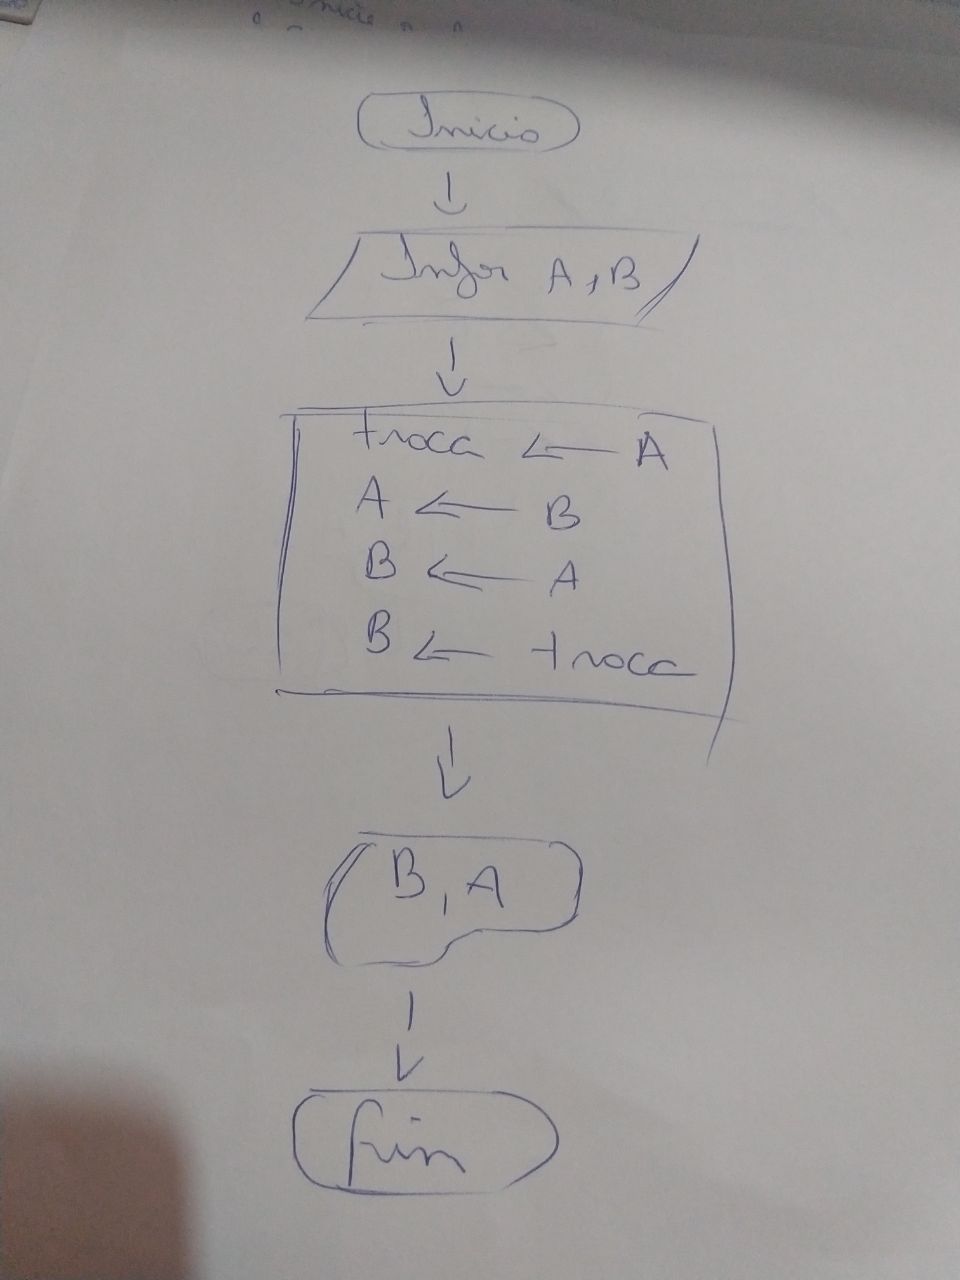 Inicio
Infor A, B
troca ← A
A ← B
B ← A
B ← troca
B, A
fim